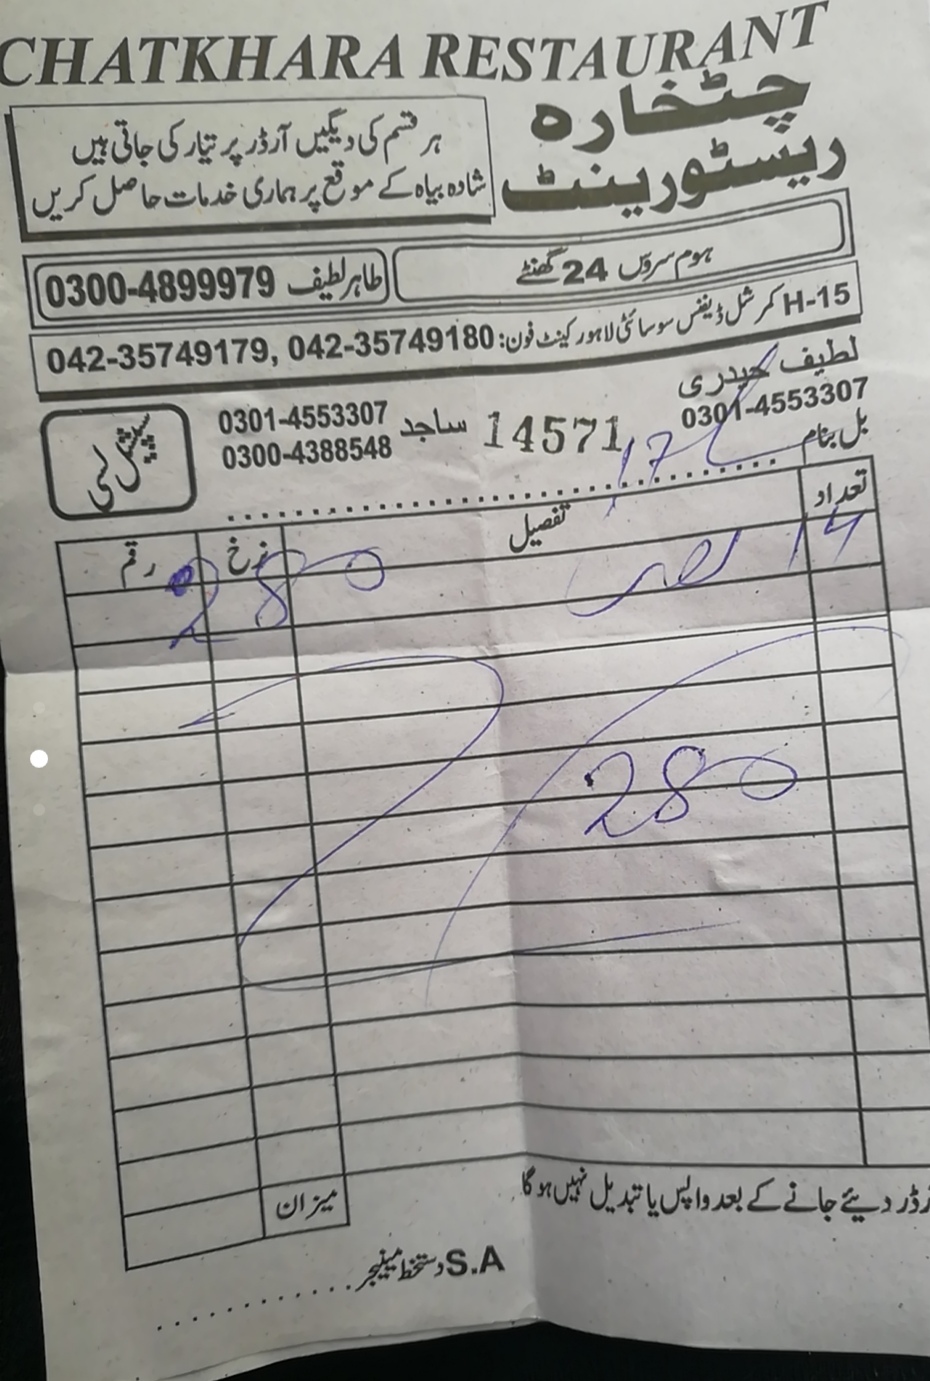 CHATKHARA RESTAURANT
چٹخارہ
ریسٹورینٹ
ہر قسم کی دیگیں آرڈر پر تیار کی جاتی ہیں
شادہ بیاہ کے موقع پر ہماری خدمات حاصل کریں
ہوم سروس 24 گھنٹے
طاہر لطیف 0300-4899979
H-15 کمرشل ڈیفنس سوسائٹی لاہور کینٹ فون: 042-35749179, 042-35749180
لطیف حیدری
0301-4553307
14571
ساجد 0301-4553307
0300-4388548
سپیشل
بل بنام
تعداد تفصیل نرخ رقم
14 280
280
میزان
رڈر دیئے جانے کے بعد واپس یا تبدیل نہیں ہو گا
S.A دستخط مینیجر